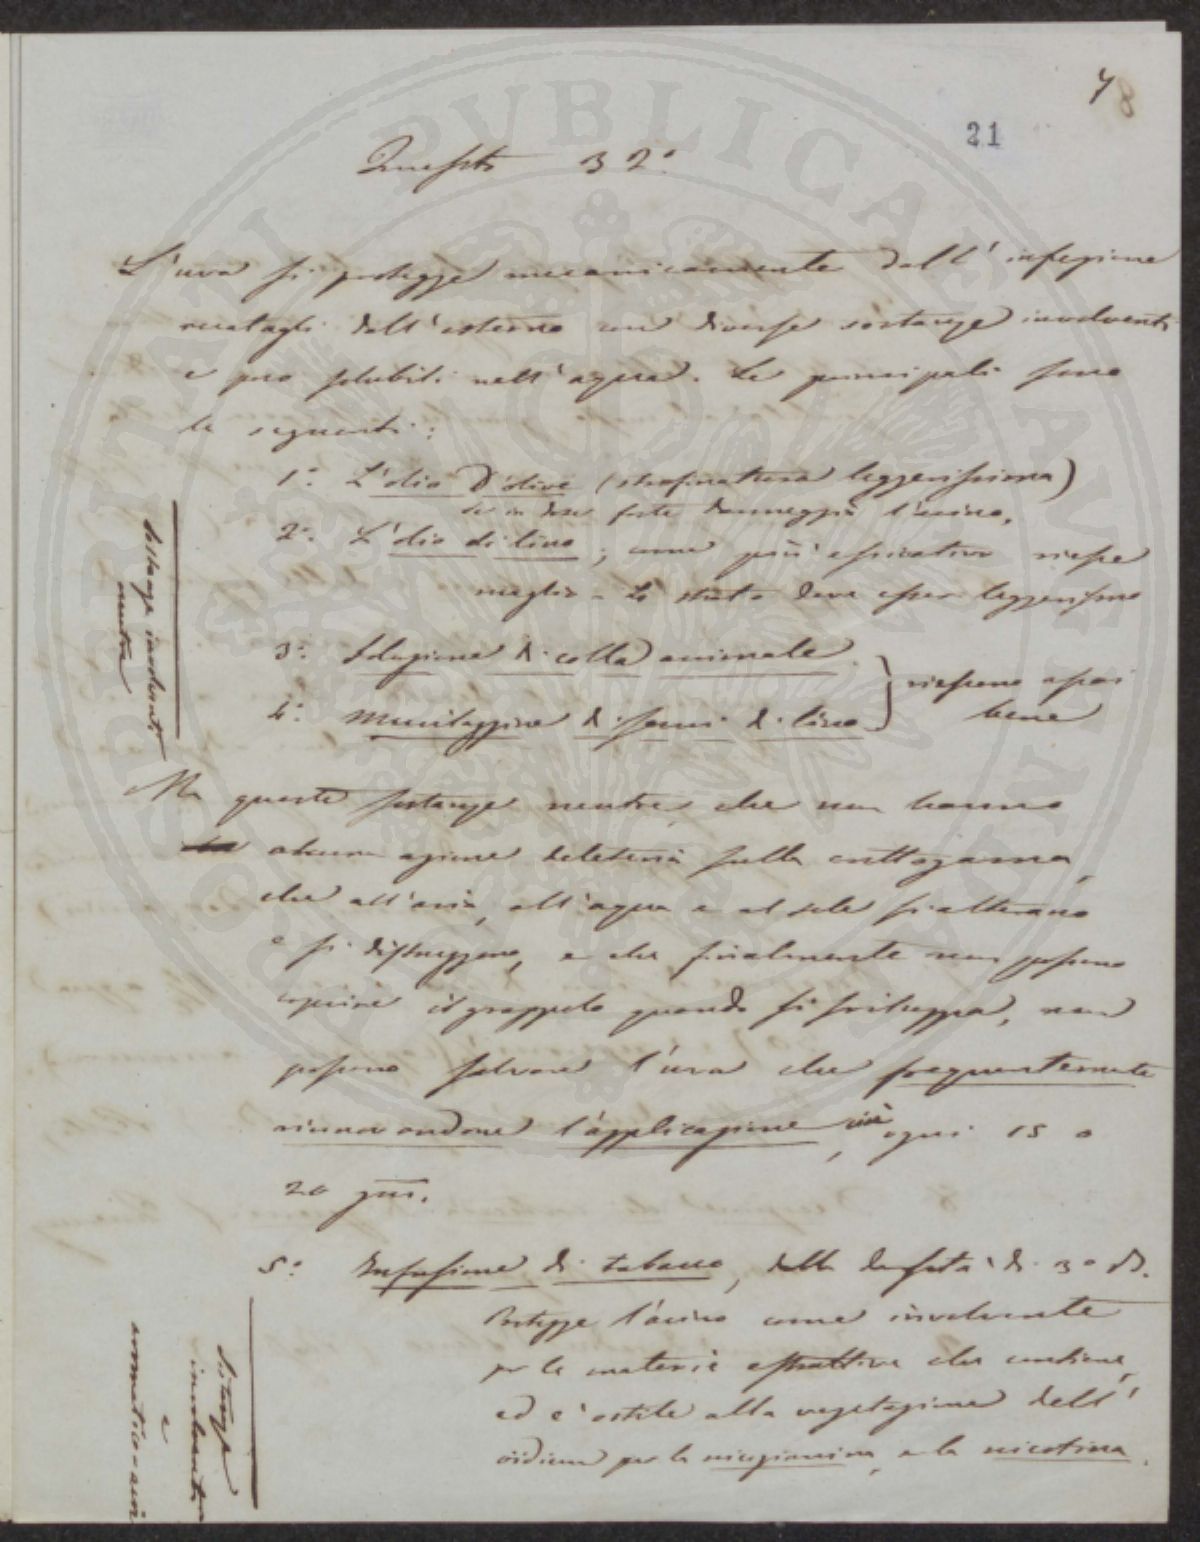 7 8
21
Quesito 32°.
L'uva si protegge meccanicamente dall'infezione
recatagli dall'esterno con diverse sostanze involventi
e poco solubili nell'acqua. Le principali sono
le seguenti:
1°. L'olio d'olive (strofinatura leggerissima)
se in dose forte danneggia l'acino.
2°. L'olio di lino, come più essicativo riesce
meglio - Lo strato deve esser leggerissimo
3°. Soluzione di colla animale
4°. Mucilaggine di semi di lino
riescono assai
bene
Sostanze involventi
neutre
Ma queste sostanze neutre, che non hanno
alcuna azione deleteria sulla crittogama,
che all'aria, all'acqua e al sole si alterano
e si distruggono, e che finalmente non possono
coprire il grappolo quando si sviluppa, non
possono salvare l'uva che frequentemente
rinnovandone l'applicazione, cioè ogni 15 o
20 gni.
5°. Infusione di tabacco, della densità di 3° B.
Protegge l'acino come involvente
per le materie estrattive che contiene,
ed è ostile alla vegetazione dell'
oidium per la nicozianina, e la nicotina.
Sostanze
involventi
e
aromatico-acri